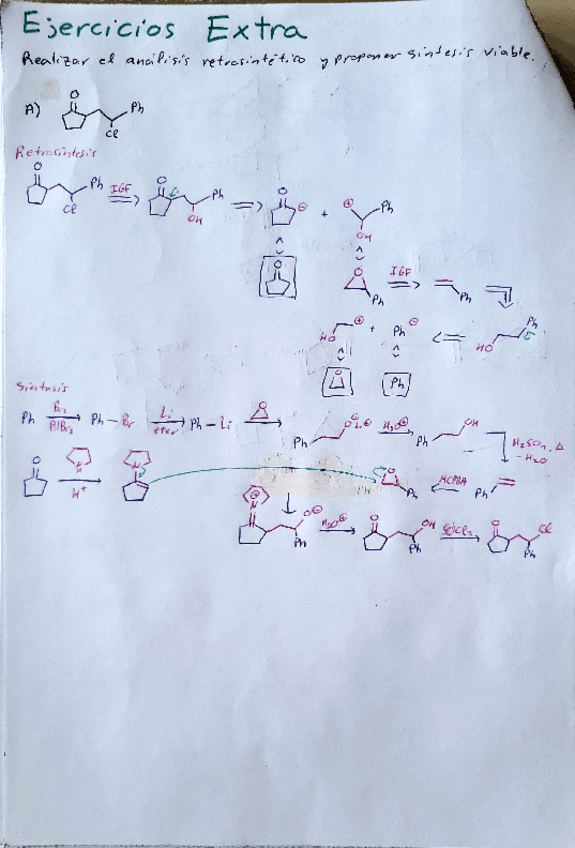 Ejercicios Extra
Realizar el análisis retrosintético y proponer síntesis viable.
A) O Ph Cl
Retrosíntesis
O Ph Cl IGF ⇒ O Ph OH ⇒ O ⊖ + ⊕ Ph OH
O O Ph IGF ⇒ Ph
HO ⊕ + Ph ⊖ ⇐ HO Ph
O Ph
Síntesis
Ph Br₂ AlBr₃ → Ph - Br Li éter → Ph - Li O → Ph O⊖Li⊕ H₃O⊕ → Ph OH H₂SO₄, Δ -H₂O
O N H H⁺ → N O Ph MCPBA ← Ph
⊕ N O⊖ Ph H₃O⊕ → O OH Ph SOCl₂ → O Cl Ph